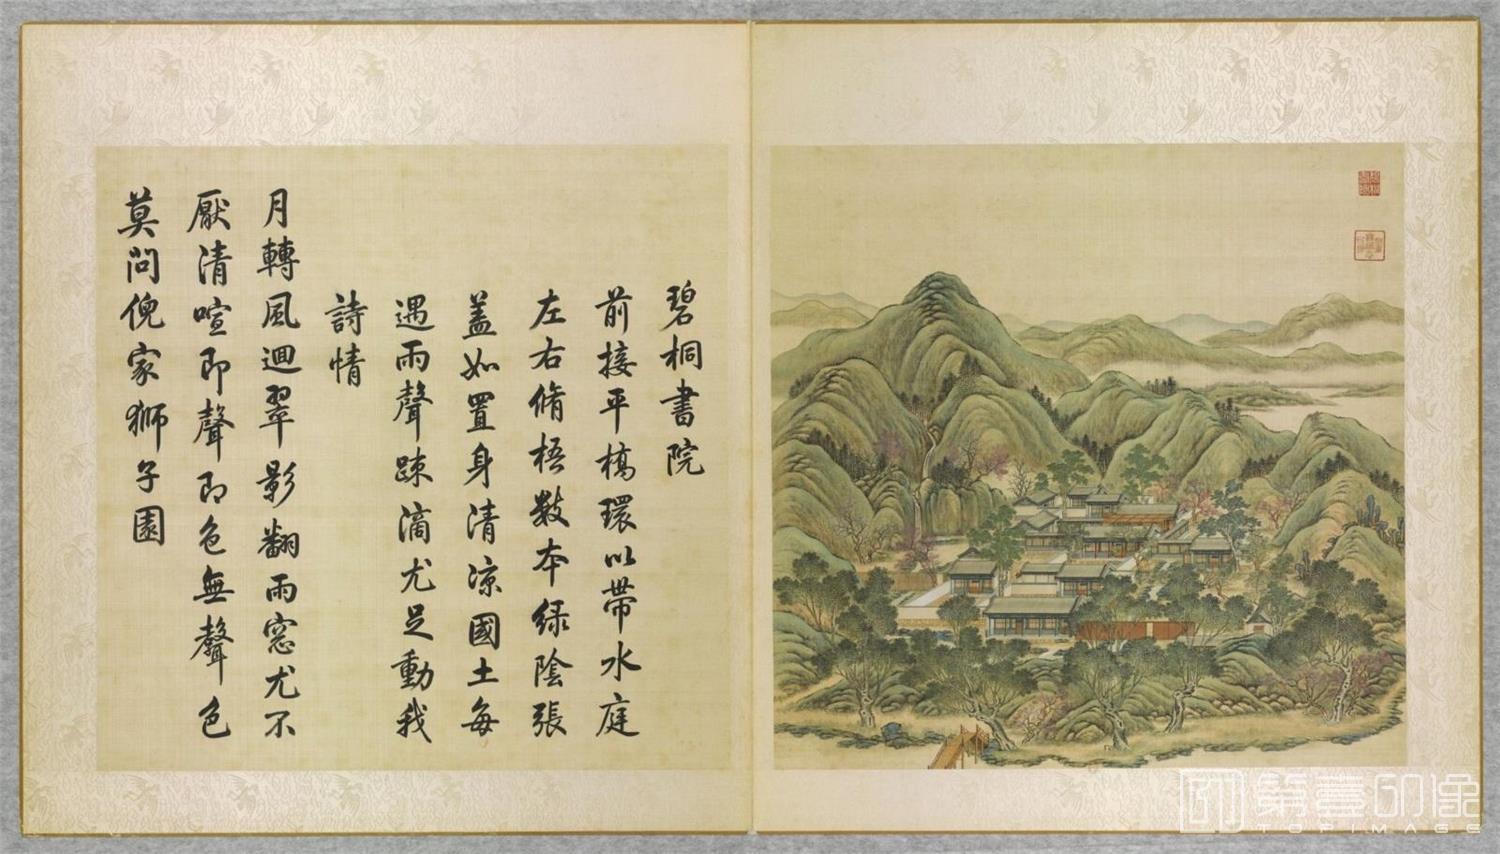 碧桐書院
前接平橋環以帶水庭
左右脩梧數本綠陰張
蓋如置身清涼國土每
遇雨聲疎滴尤足動我
詩情
月轉風迴翠影翻雨窓尤不
厭清喧即聲即色無聲色
莫問倪家獅子園
第壹印像
TOPIMAGE